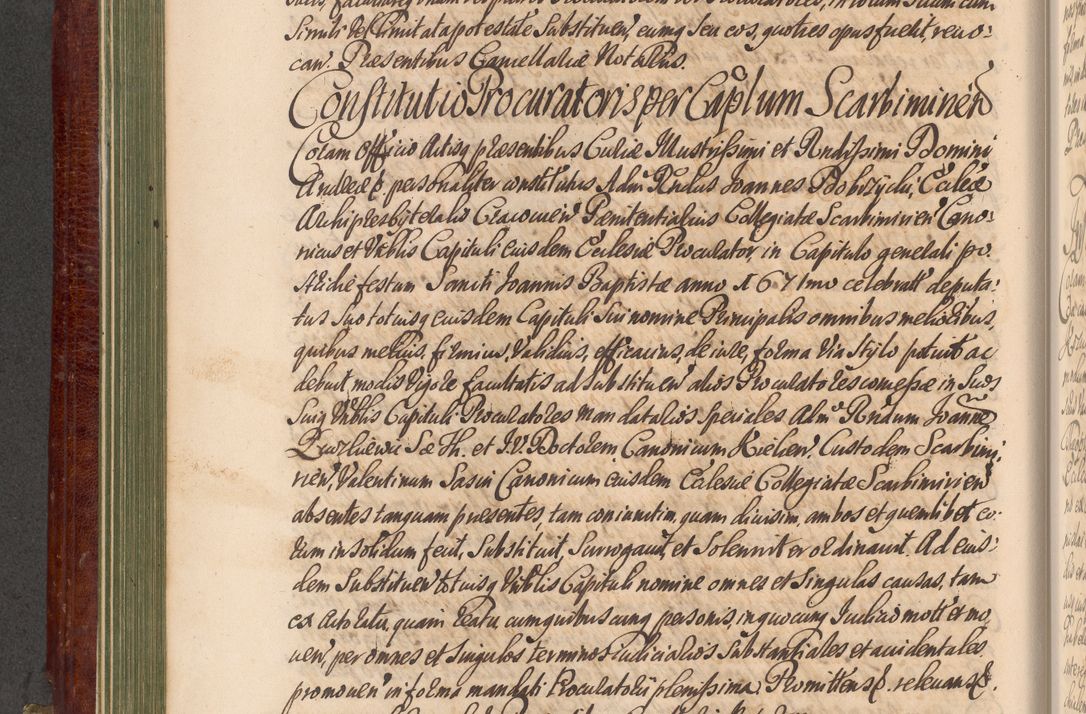 simili vel limitata potestate Substituen, eumq seu eos, quoties opus fuerit, revo:
can. Præsentibus Camellaliæ Notariis.
Constitutio Procuratoris per Caplum Scarbimirien
Coram Officio Actisq præsentibus Curiæ Illustrissimi et Rndissimi Domini
Andreæ &c. personaliter constitutus Adm. Rndus Joannes Bobrzycki, Eccliæ
Archipresbyteralis Cracovien Pænitentiarius Collegiatæ Scarbimirien Cano:
nicus et Vnblis Capituli eiusdem Ecclesiæ Procurator, in Capitulo generali pro
Altidie festum Sancti Joannis Baptistæ anno 1671mo celebratt deputa:
tus suo totiusq eiusdem Capituli sui nomine Principalis omnibus melioribus,
quibus melius, firmius, Validius, efficacius, de iure, forma via stylo potuit ac
debuit modis Vigore facultatis ad substituen alios Procuratores comessæ in suos
suiq Vnblis Capituli Procuratores mandatarios speciales Adm. Rndum Joanne
S. Th. et J.V. Doctorem Canonicum Kielcen. Custodem Scarbimi:
rien, Valentinum Sasin Canonicum eiusdem Ecclesiæ Collegiatæ Scarbimirien
absentes tanquam præsentes, tam coniunctim, quam divisim, ambos et quemlibet eo:
rum in solidum fecit, Substituit, Surrogavit, et Solenniter ordinavit. Ad eius:
dem Substituen totiusq Vnblis Capituli nomine omnes et singulas causas, tam
ex Actoratu, quam Reatu, cum quibuscunq personis, in quocunq Iudicio mott et mo:
ven, per omnes et singulos terminos iudiciarios Substantiales et accidentales
promoven in forma mandati Procuratorii plenissima. Promittens &c. relevans &c.